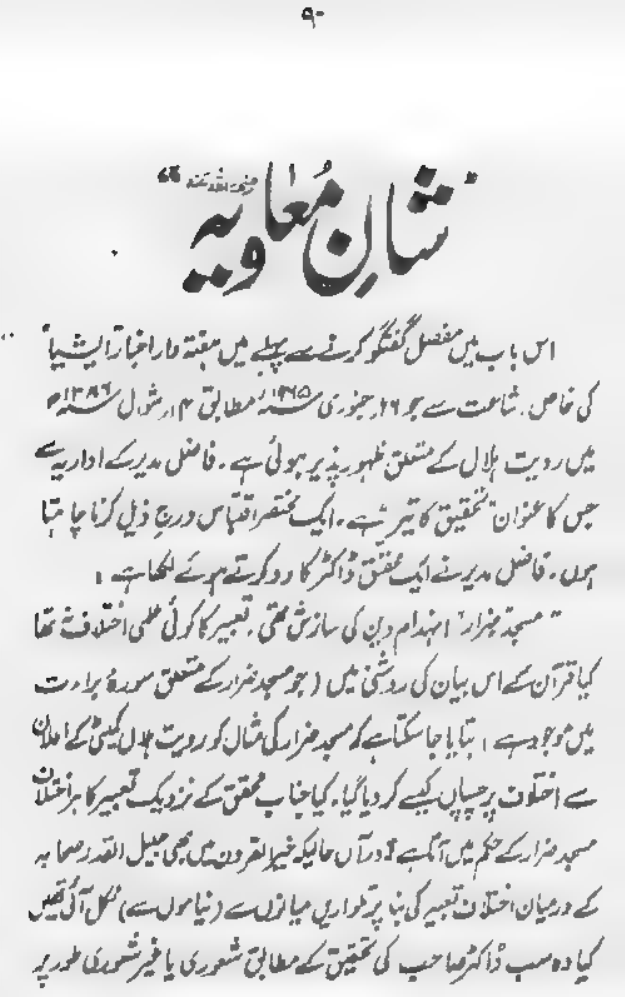 ۹۰
"شانِ مُعاویہ رضی اللہ عنہ"
اس باب میں مفصل گفتگو کرنے سے پہلے میں ہفتہ وار اخبار "ایشیا"
کی خاص اشاعت سے جو ۱۶ر جنوری مطابق ۴ر شوال ۱۳۸۶ھ
میں رویت ہلال کے متعلق ظہور پذیر ہوئی ہے۔ فاضل مدیر کے اداریہ سے
جس کا عنوان "تحقیق کا تیر" ہے۔ ایک مختصر اقتباس درج ذیل کرنا چاہتا
ہوں۔ فاضل مدیر نے ایک محقق ڈاکٹر کا رد کرتے ہوئے لکھا ہے:
"مسجد ضرار" انہدام دین کی سازش تھی۔ تعبیر کا کوئی علمی اختلاف نہ تھا
کیا قرآن کے اس بیان کی روشنی میں (جو مسجد ضرار کے متعلق سورۂ براءت
میں موجود ہے) بتایا جا سکتا ہے کہ مسجد ضرار کی مثال کو رویت ہلال کمیٹی کے اعلان
سے اختلاف پر چسپاں کیسے کر دیا گیا۔ کیا جناب محقق کے نزدیک تعبیر کا ہر اختلاف
مسجد ضرار کے حکم میں آتا ہے؟ درآں حالیکہ خیر القرون میں بھی جلیل القدر صحابہ
کے درمیان اختلاف تعبیر کی بنا پر تلواریں میانوں سے (نیاموں سے) نکل آئی تھیں
کیا وہ سب ڈاکٹر صاحب کی تحقیق کے مطابق شعوری یا غیر شعوری طور پر